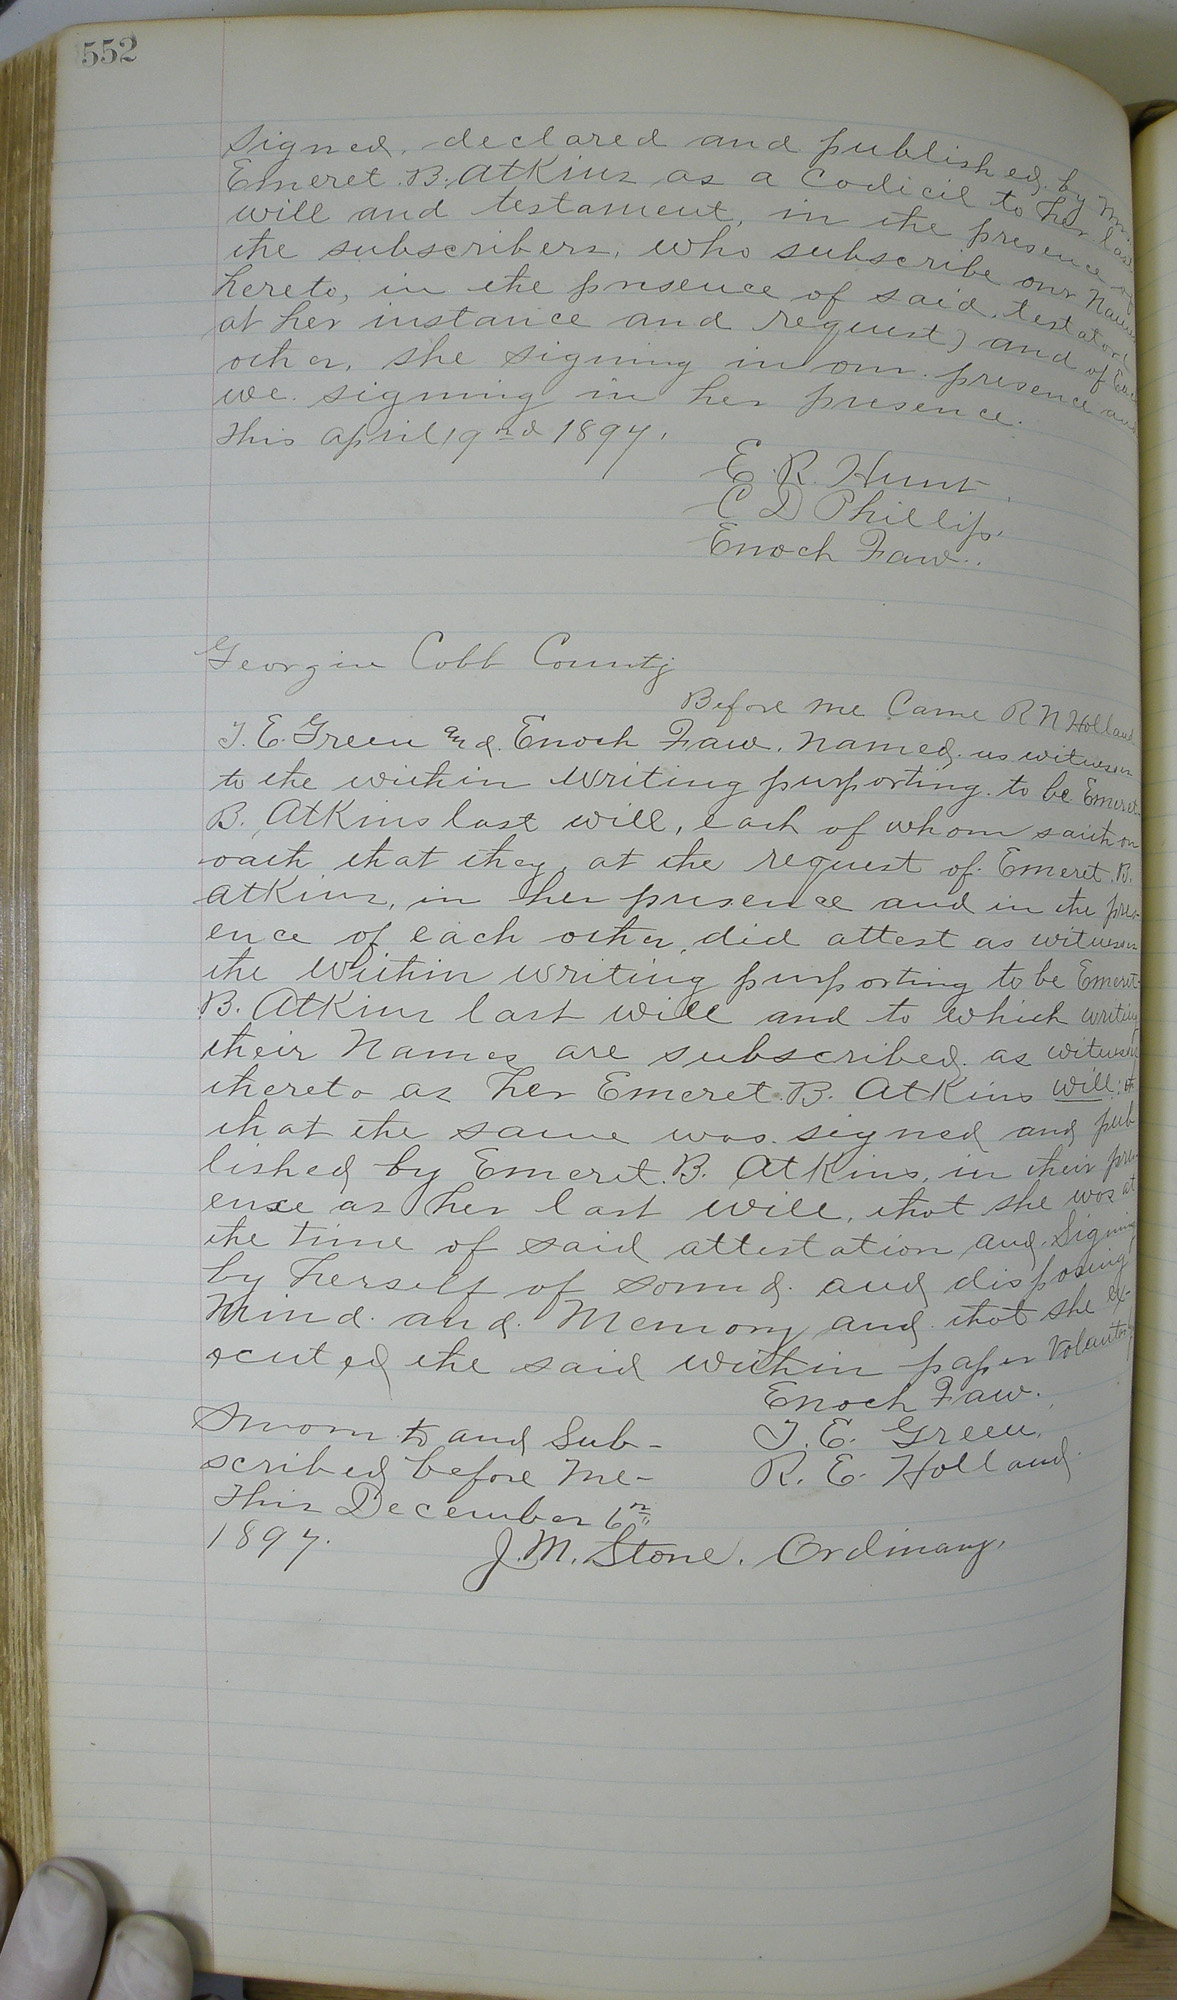 552
Signed, declared and published, by Mrs
Emeret B. Atkins as a Codicil to her last
will and testament, in the presence of
the subscribers, who subscribe our Names
hereto, in the presence of said, testatore
at her instance and request, and of Each
other, she signing in our presence and
we signing in her presence.
This April 19nd 1897.
E. R. Hunt.
C D Phillips.
Enoch Faw.
Georgia Cobb County
Before me Came R N Holland
T. E. Green and Enoch Faw, named, as witnesses
to the within writing purporting to be Emeret
B. Atkins last will, each of whom saith on
oath that they, at the request of Emeret B.
Atkins, in her presence and in the pres-
ence of each other, did attest as witnesses
the within writing purporting to be Emeret
B. Atkins last will and to which writing
their Names are subscribed, as witnesses
thereto as her Emeret B. Atkins will:
that the same was signed and pub
lished by Emeret B. Atkins, in their pres-
ence as her last will, that she was at
the time of said attestation and Signing
by herself of sound and disposing
Mind and Memory and that she ex-
ecuted the said within paper
Enoch Faw.
Sworn to and Sub-
T. E. Green.
scribed before me-
R. E. Holland.
This December 6th
1897.
J. M. Stone. Ordinary.